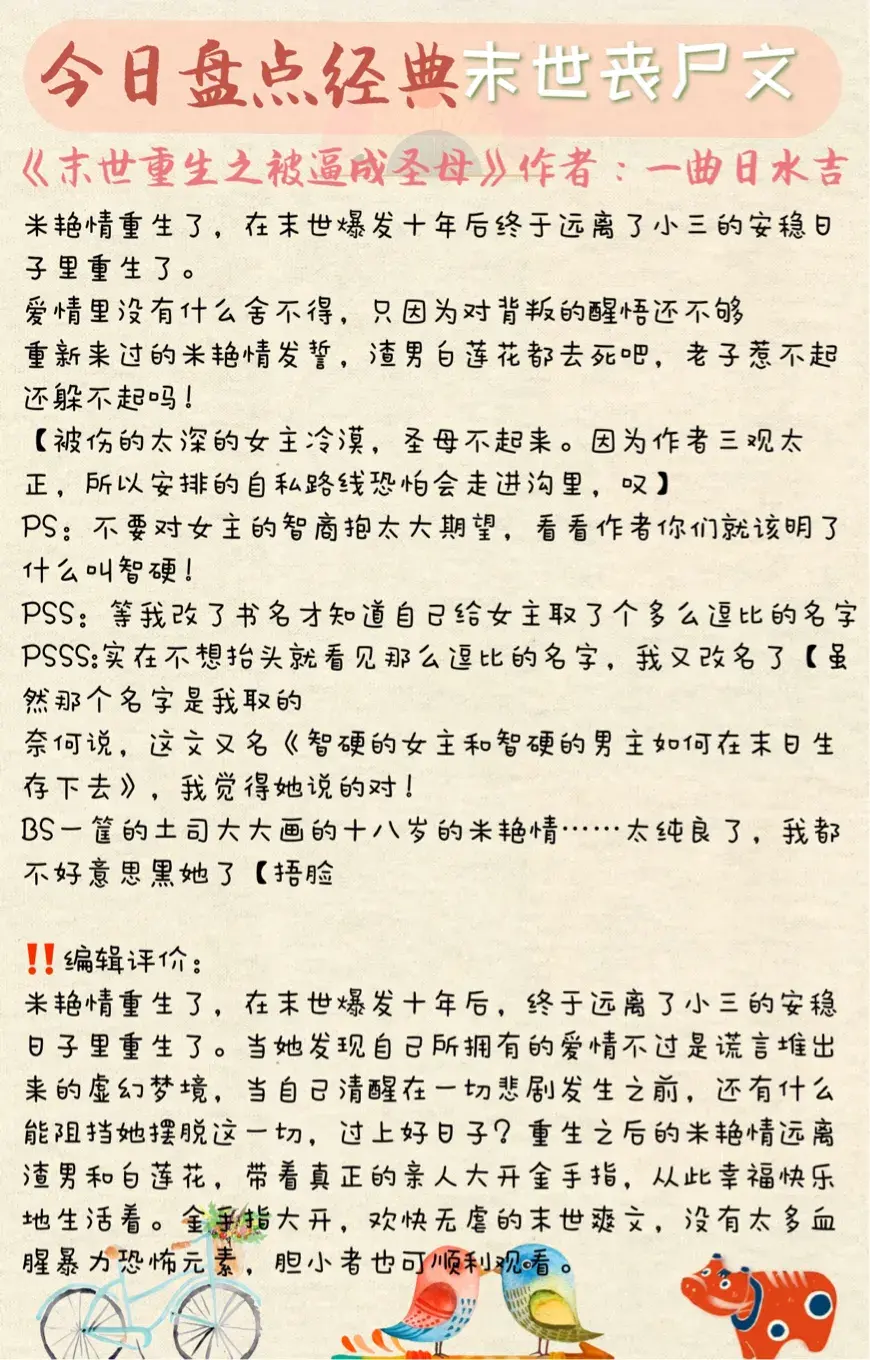 今日盘点经典末世丧尸文
《末世重生之被逼成圣母》作者：一曲日水吉
米艳情重生了，在末世爆发十年后终于远离了小三的安稳日
子里重生了。
爱情里没有什么舍不得，只因为对背叛的醒悟还不够
重新来过的米艳情发誓，渣男白莲花都去死吧，老子惹不起
还躲不起吗！
【被伤的太深的女主冷漠，圣母不起来。因为作者三观太
正，所以安排的自私路线恐怕会走进沟里，叹】
PS：不要对女主的智商抱太大期望，看看作者你们就该明了
什么叫智硬！
PSS：等我改了书名才知道自己给女主取了个多么逗比的名字
PSSS:实在不想抬头就看见那么逗比的名字，我又改名了【虽
然那个名字是我取的
奈何说，这文又名《智硬的女主和智硬的男主如何在末日生
存下去》，我觉得她说的对！
BS一筐的土司大大画的十八岁的米艳情……太纯良了，我都
不好意思黑她了【捂脸
‼️编辑评价：
米艳情重生了，在末世爆发十年后，终于远离了小三的安稳
日子里重生了。当她发现自己所拥有的爱情不过是谎言堆出
来的虚幻梦境，当自己清醒在一切悲剧发生之前，还有什么
能阻挡她摆脱这一切，过上好日子？重生之后的米艳情远离
渣男和白莲花，带着真正的亲人大开金手指，从此幸福快乐
地生活着。金手指大开，欢快无虐的末世爽文，没有太多血
腥暴力恐怖元素，胆小者也可顺利观看。